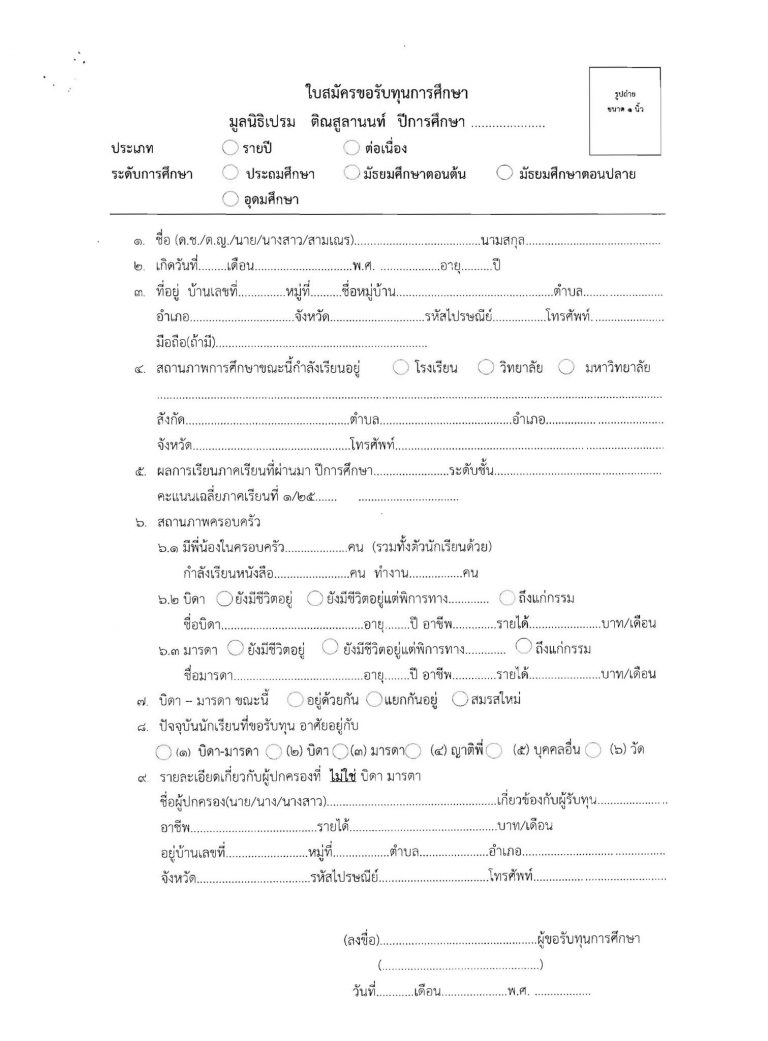 รูปถ่าย
ขนาด ๑ นิ้ว
ใบสมัครขอรับทุนการศึกษา
มูลนิธิเปรม ติณสูลานนท์ ปีการศึกษา .....................
ประเภท ◯ รายปี ◯ ต่อเนื่อง
ระดับการศึกษา ◯ ประถมศึกษา ◯ มัธยมศึกษาตอนต้น ◯ มัธยมศึกษาตอนปลาย
◯ อุดมศึกษา
๑. ชื่อ (ด.ช./ด.ญ./นาย/นางสาว/สามเณร)........................................นามสกุล...........................................
๒. เกิดวันที่.........เดือน...............................พ.ศ. ...................อายุ..........ปี
๓. ที่อยู่ บ้านเลขที่...............หมู่ที่..........ชื่อหมู่บ้าน..................................................ตำบล.........................
อำเภอ.................................จังหวัด..............................รหัสไปรษณีย์.................โทรศัพท์......................
มือถือ(ถ้ามี)...................................................................
๔. สถานภาพการศึกษาขณะนี้กำลังเรียนอยู่ ◯ โรงเรียน ◯ วิทยาลัย ◯ มหาวิทยาลัย
................................................................................................................................................
สังกัด....................................................ตำบล...................................................อำเภอ.....................................
จังหวัด..................................................โทรศัพท์.....................................................................................
๕. ผลการเรียนภาคเรียนที่ผ่านมา ปีการศึกษา........................ระดับชั้น.....................................................
คะแนนเฉลี่ยภาคเรียนที่ ๑/๒๕....... ................................
๖. สถานภาพครอบครัว
๖.๑ มีพี่น้องในครอบครัว....................คน (รวมทั้งตัวนักเรียนด้วย)
กำลังเรียนหนังสือ........................คน ทำงาน.................คน
๖.๒ บิดา ◯ ยังมีชีวิตอยู่ ◯ ยังมีชีวิตอยู่แต่พิการทาง............. ◯ ถึงแก่กรรม
ชื่อบิดา.............................................อายุ........ปี อาชีพ..............รายได้.......................บาท/เดือน
๖.๓ มารดา ◯ ยังมีชีวิตอยู่ ◯ ยังมีชีวิตอยู่แต่พิการทาง............. ◯ ถึงแก่กรรม
ชื่อมารดา.........................................อายุ........ปี อาชีพ..............รายได้.......................บาท/เดือน
๗. บิดา – มารดา ขณะนี้ ◯ อยู่ด้วยกัน ◯ แยกกันอยู่ ◯ สมรสใหม่
๘. ปัจจุบันนักเรียนที่ขอรับทุน อาศัยอยู่กับ
◯ (๑) บิดา-มารดา ◯ (๒) บิดา ◯ (๓) มารดา ◯ (๔) ญาติพี่ ◯ (๕) บุคคลอื่น ◯ (๖) วัด
๙. รายละเอียดเกี่ยวกับผู้ปกครองที่ ไม่ใช่ บิดา มารดา
ชื่อผู้ปกครอง(นาย/นาง/นางสาว)......................................................เกี่ยวข้องกับผู้รับทุน.......................
อาชีพ........................................รายได้...............................................บาท/เดือน
อยู่บ้านเลขที่..........................หมู่ที่..................ตำบล......................อำเภอ.............................................
จังหวัด....................................รหัสไปรษณีย์...................................โทรศัพท์..........................................
(ลงชื่อ)..................................................ผู้ขอรับทุนการศึกษา
(..................................................)
วันที่............เดือน.....................พ.ศ. ..................